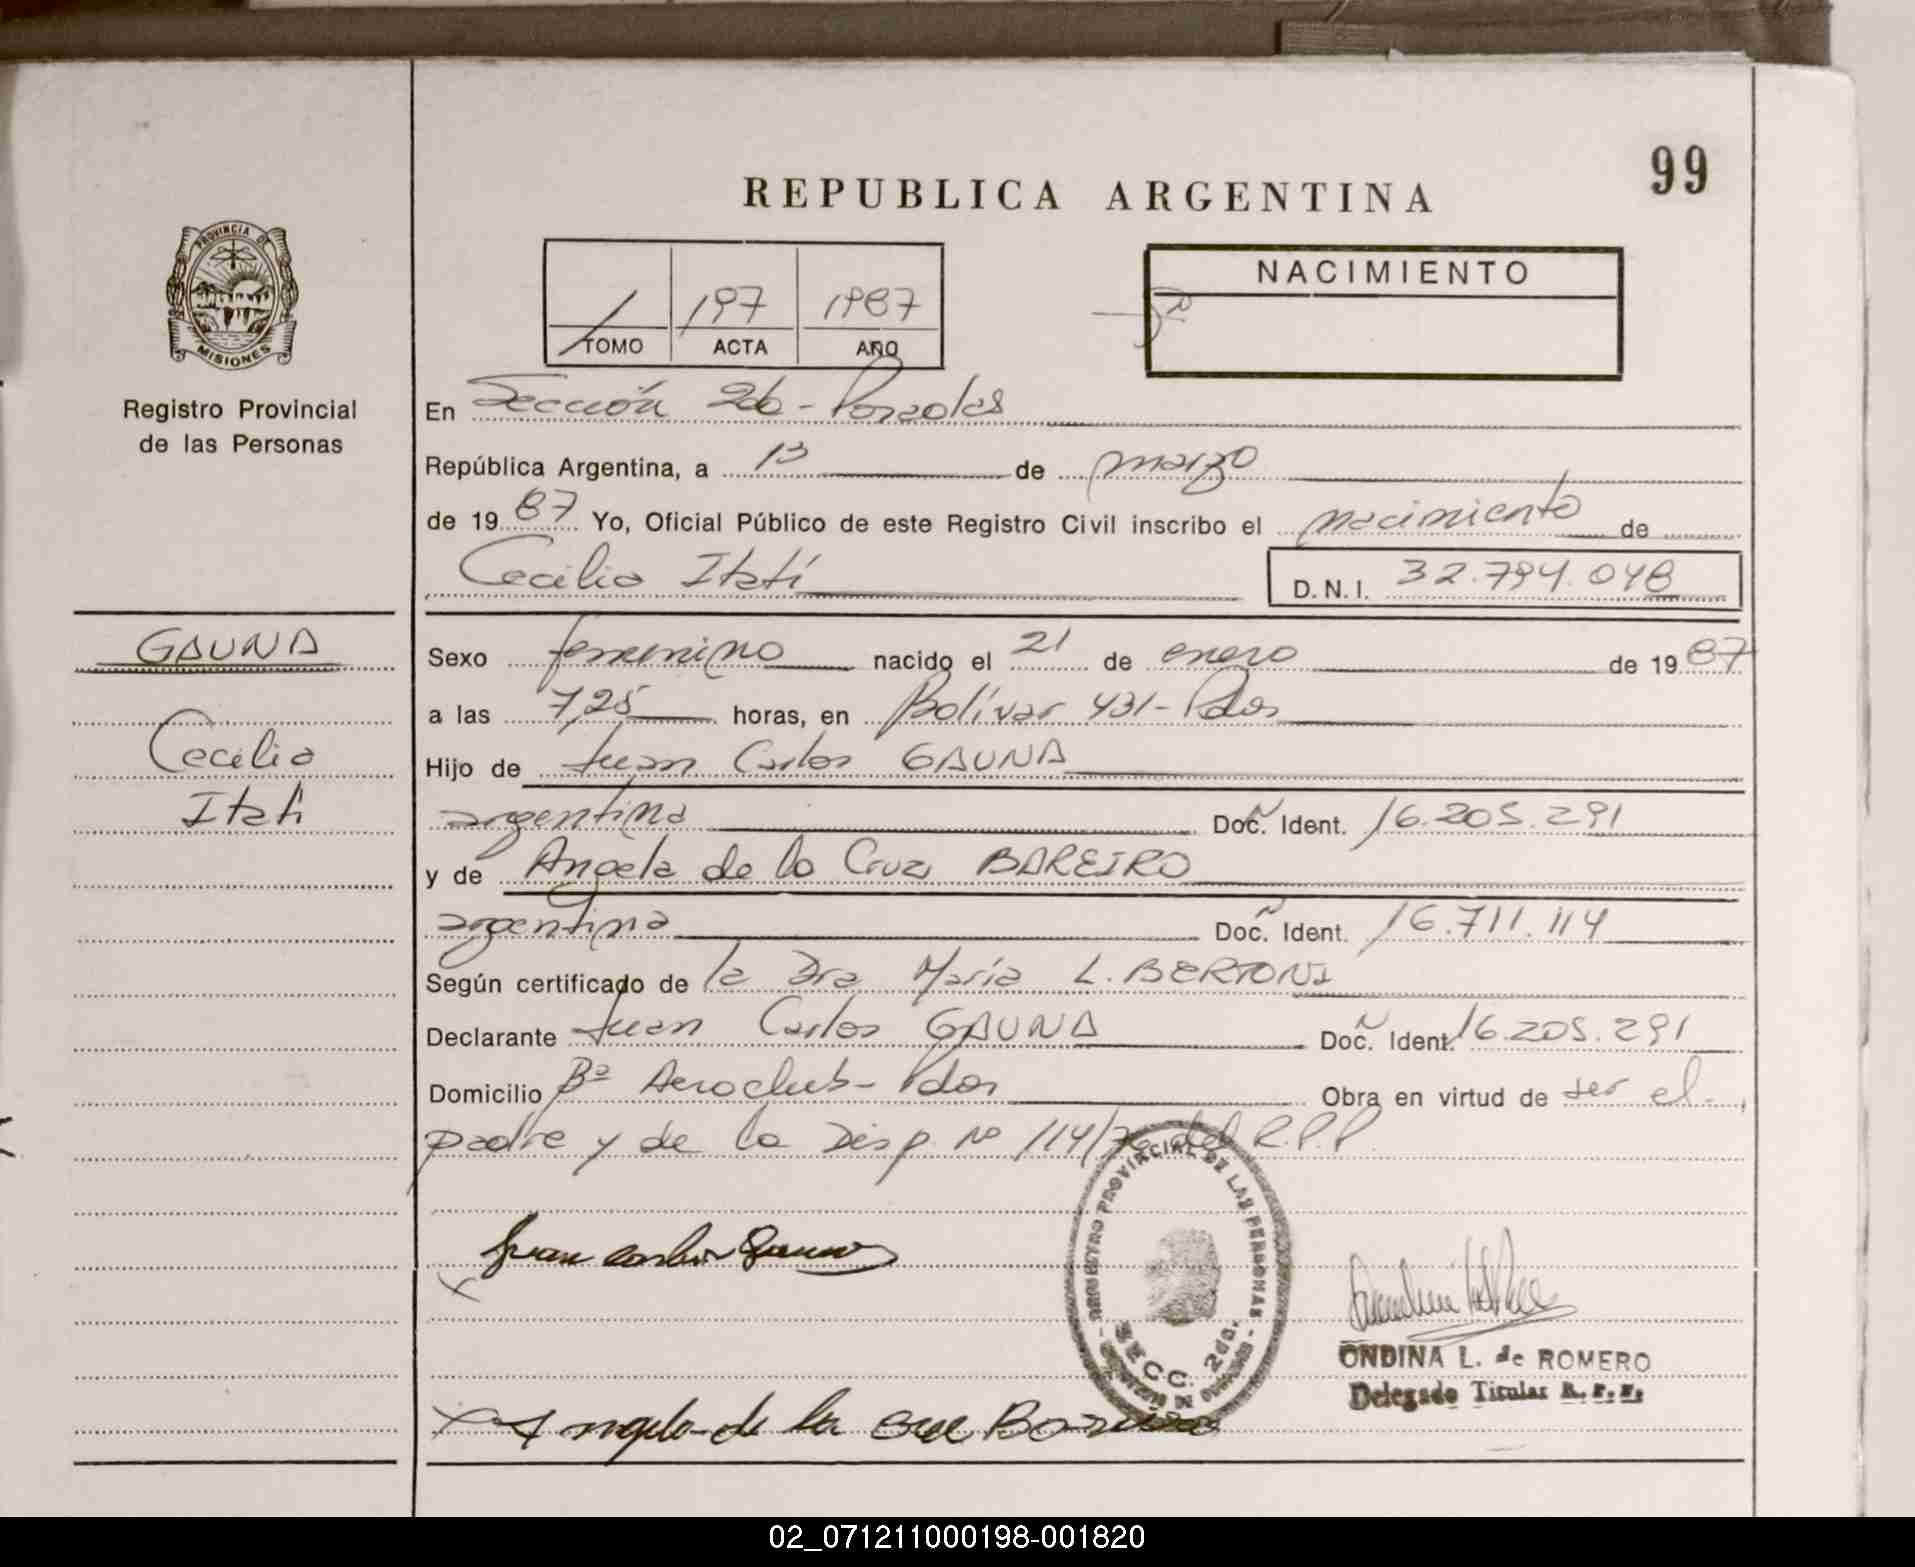 99
REPUBLICA ARGENTINA
PROVINCIA DE
MISIONES
Registro Provincial
de las Personas
/ 197 1987
TOMO ACTA AÑO
NACIMIENTO
En Sección 2da - Posadas
República Argentina, a 13 de marzo
de 1987 Yo, Oficial Público de este Registro Civil inscribo el nacimiento de
Cecilia Itatí D.N.I. 32.794.048
GAUNA
Cecilia
Itatí
Sexo femenino nacido el 21 de enero de 1987
a las 7,25 horas, en Bolívar 431 - Pdas
Hijo de Juan Carlos GAUNA
argentina Doc. Ident. 16.205.291
y de Angela de la Cruz BAREIRO
argentina Doc. Ident. 16.711.114
Según certificado de la Dra María L. BERTONI
Declarante Juan Carlos GAUNA Doc. Ident. 16.205.291
Domicilio Bº Aeroclub - Pdas Obra en virtud de ser el
padre y de la Disp. Nº 114/ del R.P.P.
Juan Carlos Gauna
REGISTRO PROVINCIAL DE LAS PERSONAS
SECC. 2da.
ONDINA L. de ROMERO
Delegado Titular R.P.P.
X Angela de la Cruz Bareiro
02_071211000198-001820